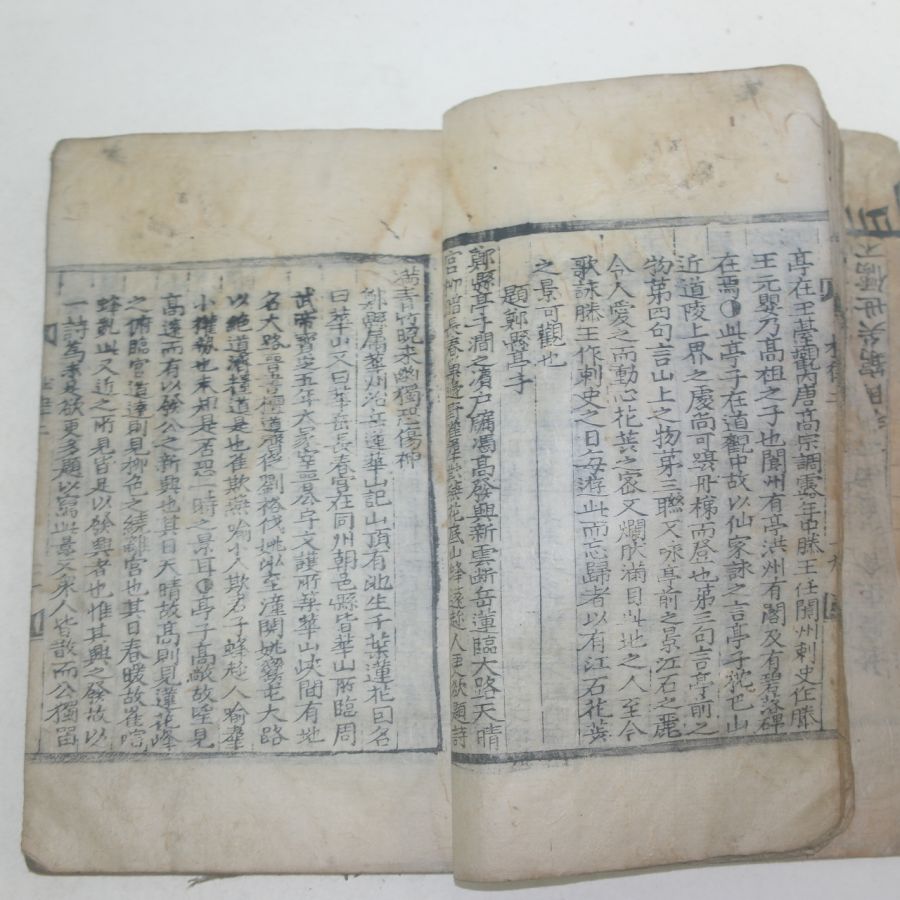 亭在王䑓觀內唐高宗調露年中滕王任閬州刺史作滕
王元嬰乃高祖之子也閬州有亭洪州有閣及有碧落碑
在焉此亭子在道觀中故以仙家詠之言亭子枕巴山
近道陵上界之處尚可躡丹梯而登也第三句言亭前之
物第四句言山上之物第三聯又咏亭前之景江石之麗
令人愛之而動心花蘂之密又爛肰滿目此地之人至今
歌詠滕王作刺史之日每遊此而忘歸者以有江石花蘂
之景可觀也
題鄭縣亭子
鄭縣亭子澗之濱戶牖馮高發興新雲斷岳蓮臨大路天晴
宮柳暗長春巢邊野雀群欺燕花底山蜂遠趂人更欲題詩
滿青竹晩來幽獨恐傷神
鄭縣屬華州治岳蓮華山記山頂有池生千葉蓮花因名
曰華山又曰華岳長春宮在同州朝邑縣皆華山所臨周
武帝寶定五年大冢宰晋公宇文護所築華山峽間有地
名大路晋書檀道濟從劉裕伐姚泓至潼関姚鸞屯大路
以絶道濟粮道是也雀欺燕喩小人欺君子蜂趂人喩羣
小
時之景耳亭子高敞故望見
高遠而有以發公之新興也其曰天晴故高則見蓮花峰
之俯臨官道遠則見柳色之繞離宮也其曰春暖故雀喧
蜂亂此又近之所見皆足以發興者也惟其興之發故以
一詩為未足欲更多題以寫此景又衆人皆散而公獨留